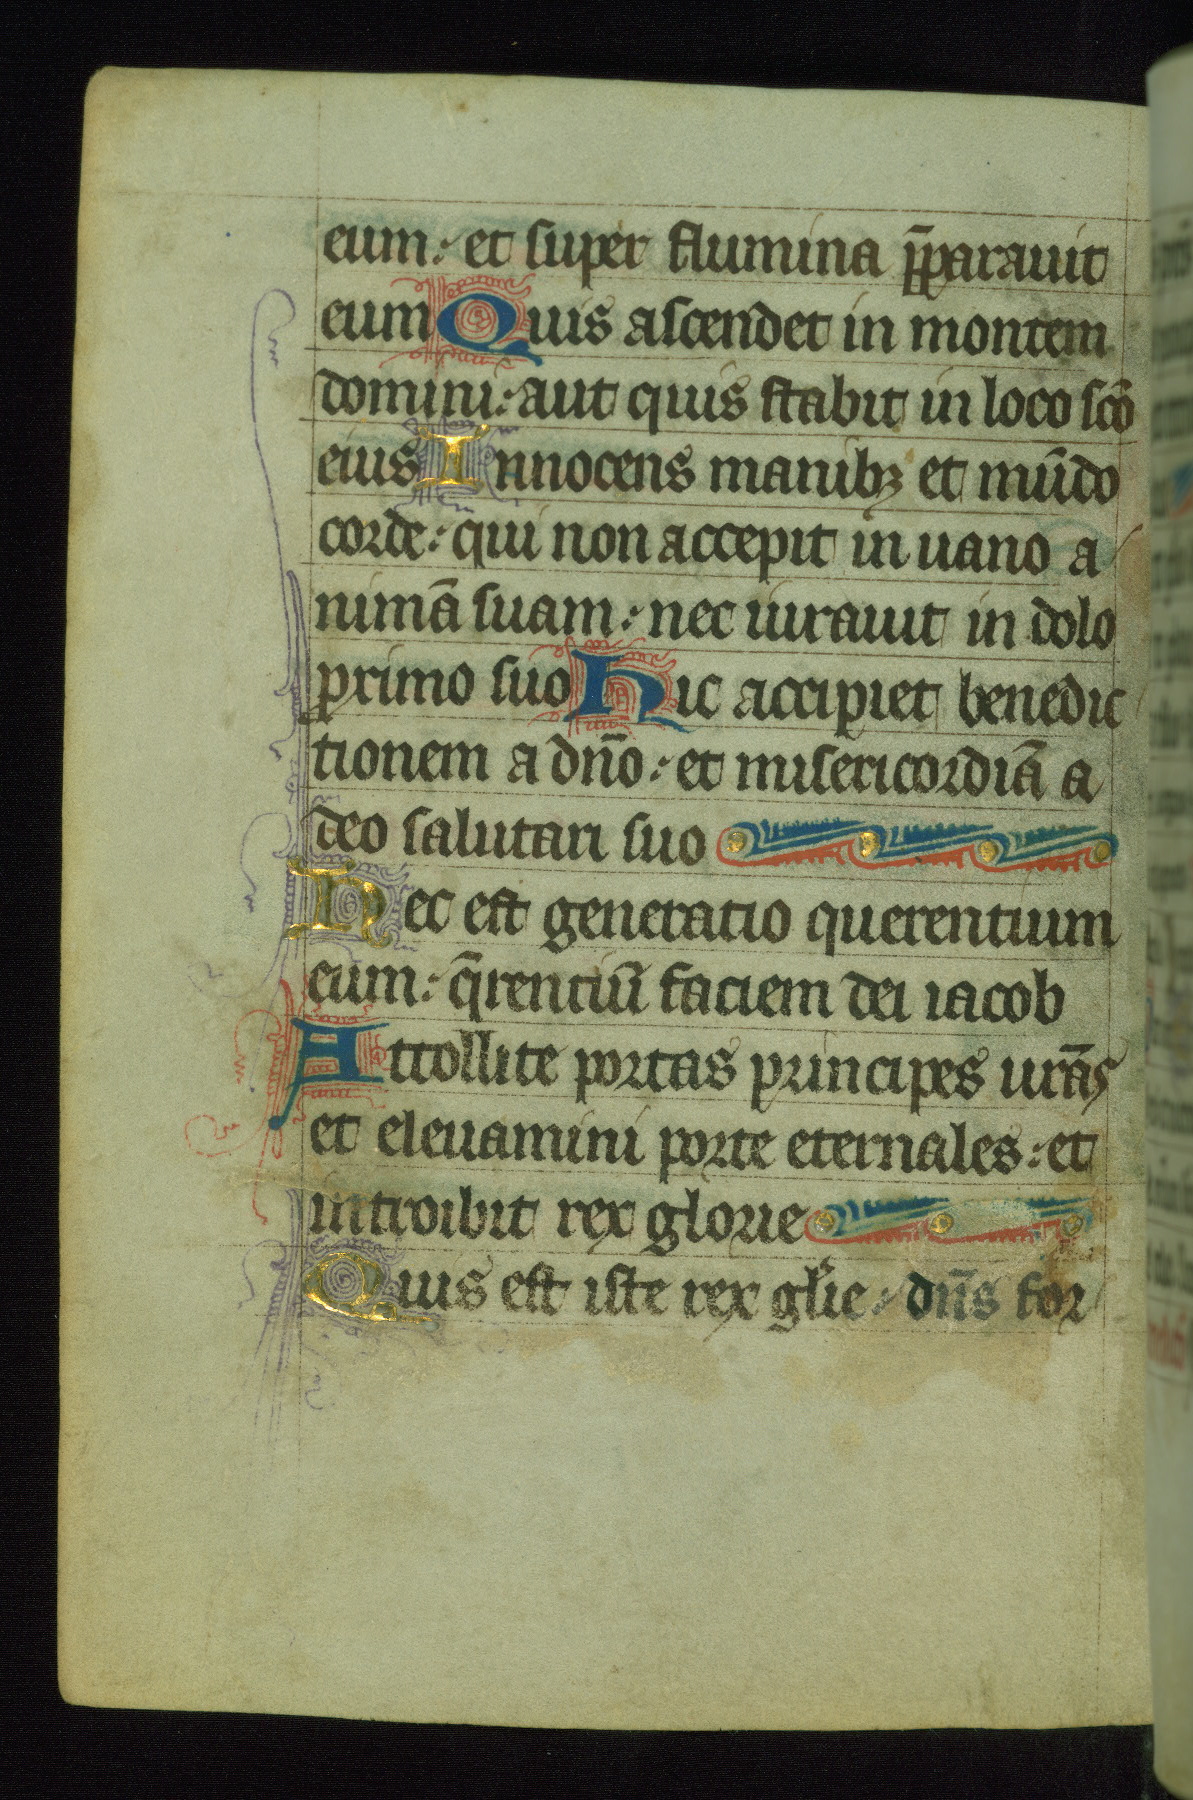 eum: et super flumina p̄parauit
eum Quis ascendet in montem
domini: aut quis stabit in loco sc̄o
eius Innocens manibꝫ et mūdo
corde: qui non accepit in uano a
nimā suam: nec iurauit in dolo
primo suo Hic accipiet benedic
tionem a dn̄o: et misericordiā a
deo salutari suo
Hec est generatio querentium
eum: q̄rentiū faciem dei iacob
Attollite portas principes urās
et eleuamini porte eternales: et
introibit rex glorie
Quis est iste rex gl'ie: dn̄s for